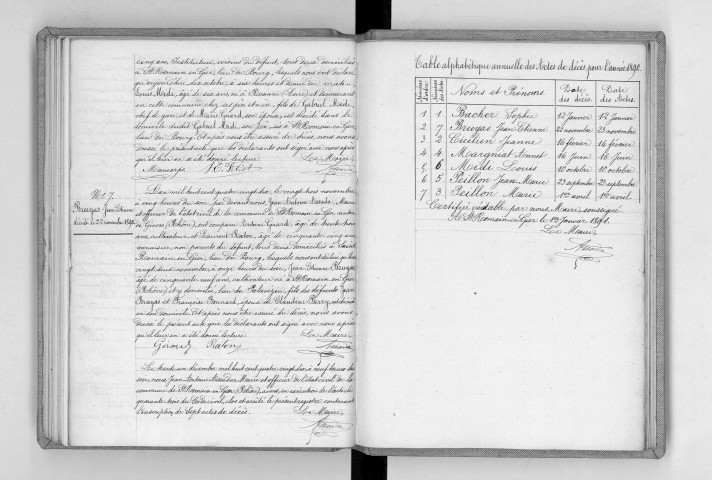 cinq ans, Instituteur, voisins du défunt, tout deux domiciliés
à St Romain en Gier, lieu du Bourg, lesquels nous ont déclaré
qu'aujourd'hui dix octobre, à six heures et demie du matin
Louis Mede, âgé de six ans, né à Roanne (Loire) et demeurant
en cette commune chez ses père et mère, fils de Gabriel Mede,
chef de gare, et de Marie Girard, son épouse, est décédé dans le
domicile dudit Gabriel Mede, son père, sis à St Romain en Gier,
lieu du Bourg. Et après nous être assuré du décès, nous avons
dressé le présent acte que les déclarants ont signé avec nous après
qu'il leur en a été donné lecture. Le Maire,
No 7
Bruyas Jean Etienne
décédé le 22 novembre 1890
L'an mil huit cent quatre vingt dix, le vingt trois novembre
à cinq heures du soir, par devant nous, Jean Antoine
et officier de l'état civil de la commune de St Romain en Gier, canton
de Givors (Rhône), ont comparu Antoine Girard, âgé de trente huit
ans, cultivateur et Laurent Raton, âgé de cinquante cinq ans
menuisier, non parents du défunt, tous deux domiciliés à Saint
Romain en Gier, lieu du Bourg, lesquels nous ont déclaré que
vingt deux novembre à onze heures du soir, Jean Etienne Bruyas
âgé de cinquante neuf ans, cultivateur, né à St Romain en Gier
(Rhône) et y domicilié, lieu du, fils des défunts Jean
Bruyas et Françoise Bonnard, époux de Claudine Berry, est décédé
en son domicile. Et après nous être assuré du décès, nous avons
dressé le présent acte que les déclarants ont signé avec nous après
qu'il leur en a été donné lecture. Le Maire,
Girard Raton
Le trente un décembre mil huit cent quatre vingt dix à neuf heures du
soir, nous, Jean Antoine, Maire et officier de l'état civil de la
commune de St Romain en Gier (Rhône), avons, en exécution de l'article
quarante trois du Code civil, clos et arrêté le présent registre contenant
l'inscription de sept actes de décès. Le Maire,
Table alphabétique annuelle des Actes de décès pour l'année 1890.
Numéros d'ordre Numéros des Actes Noms et Prénoms Date des décès. Date des Actes.
1 1 Bacher Sophie 12 Janvier 12 Janvier
2 7 Bruyas Jean Etienne 22 novembre 23 novembre
3 2 Jeanne 16 février 16 février
4 4 Margniat Annet 16 Juin 16 Juin
5 6 Mede Louis 10 octobre 10 octobre
6 5 Peillon Jean Marie 23 septembre 23 septembre
7 3 Peillon Marie 1er avril 1er avril
Certifié véritable par nous, Maire, soussigné
A St Romain en Gier, le 13 Janvier 1891.
Le Maire,